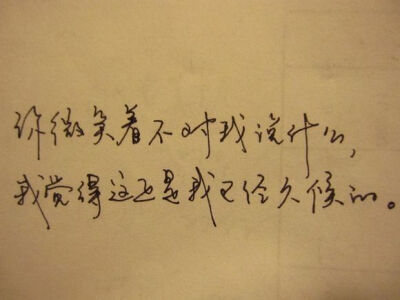 你微笑着不对我说什么，
我觉得这也是我已经久候的。